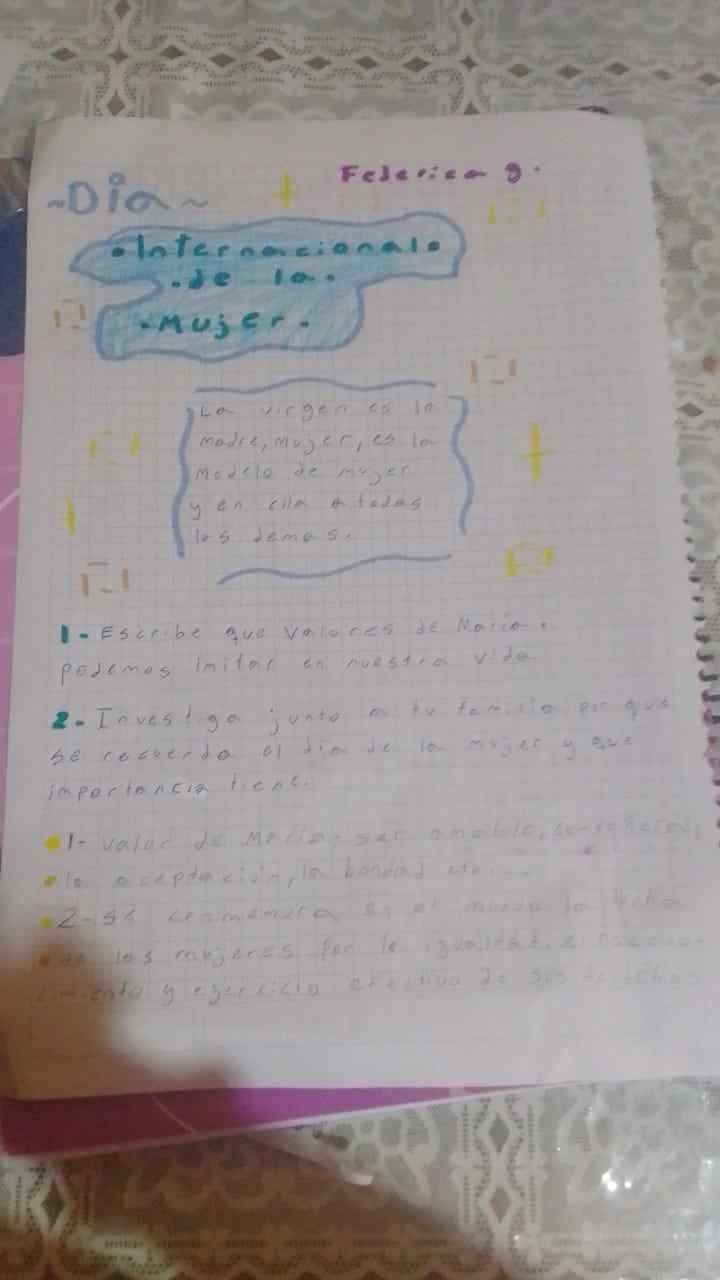 Federica g.
~Día~
•Internacional•
•de la•
•Mujer•
La virgen es la
madre, mujer, es la
modelo de mujer
y en ella a todas
las demas.
1- Escribe que valores de María
podemos imitar en nuestra vida
2- Investiga junto a tu familia por que
se recuerda el día de la mujer y que
importancia tiene.
1- valor de María: ser amable,
la aceptación, la bondad etc....
2- se conmemora en el mundo la lucha
de las mujeres por la igualdad, el recono-
cimiento y ejercicio efectivo de sus derechos